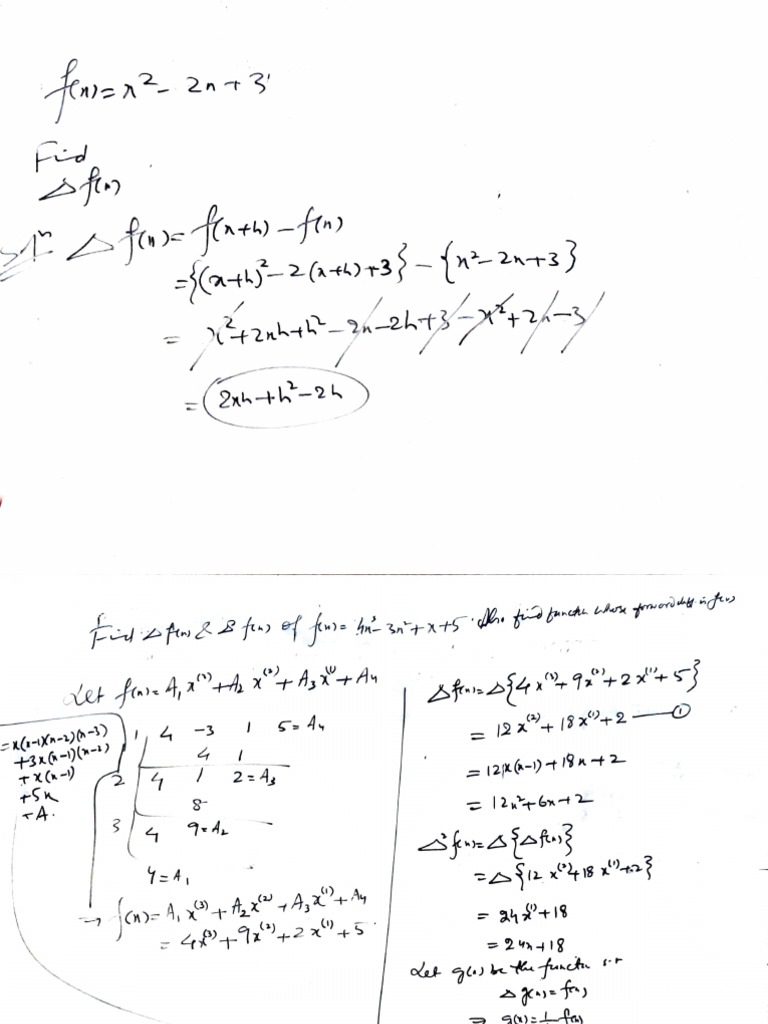 f(x)=x²-2x+3
Find
Δf(x)
Solⁿ Δf(x)=f(x+h)-f(x)
={(x+h)²-2(x+h)+3}-{x²-2x+3}
= x²+2xh+h²-2x-2h+3-x²+2x-3
= 2xh+h²-2h
Find Δf(x) & f(x) of f(x)=4x³-3x²+x+5. Also find function whose forward diff is f(x)
Let f(x)=A₁x⁽³⁾+A₂x⁽²⁾+A₃x⁽¹⁾+A₄
=x(x-1)(x-2)(x-3)
+3x(x-1)(x-2)
+x(x-1)
+5x
+A.
1 4 -3 1 5=A₄
4 1
2 4 1 2=A₃
8
3 4 9=A₂
4=A₁
⇒ f(x)=A₁x⁽³⁾+A₂x⁽²⁾+A₃x⁽¹⁾+A₄
= 4x⁽³⁾+9x⁽²⁾+2x⁽¹⁾+5
Δf(x)=Δ{4x⁽³⁾+9x⁽²⁾+2x⁽¹⁾+5}
= 12x⁽²⁾+18x⁽¹⁾+2 —①
=12x(x-1)+18x+2
=12x²+6x+2
Δ²f(x)=Δ{Δf(x)}
=Δ{12x⁽²⁾+18x⁽¹⁾+2}
= 24x⁽¹⁾+18
= 24x+18
Let g(x) be the function s.t
Δg(x)=f(x)
⇒ g(x)=1/Δ f(x)